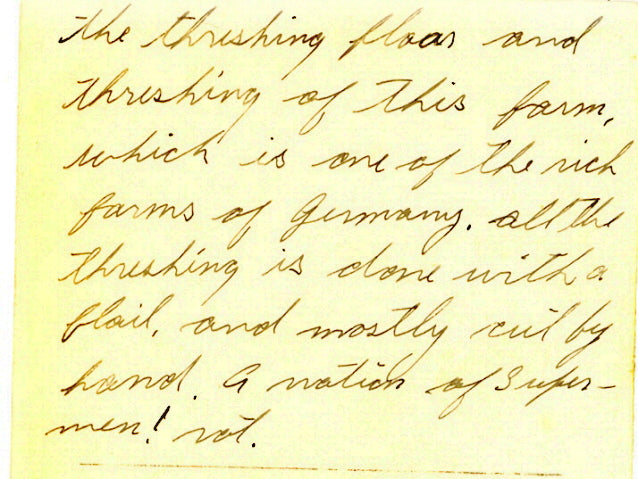 the threshing floor and
threshing of this farm,
which is one of the rich
farms of Germany. all the
threshing is done with a
flail, and mostly cut by
hand. A nation of Super-
men! rot.